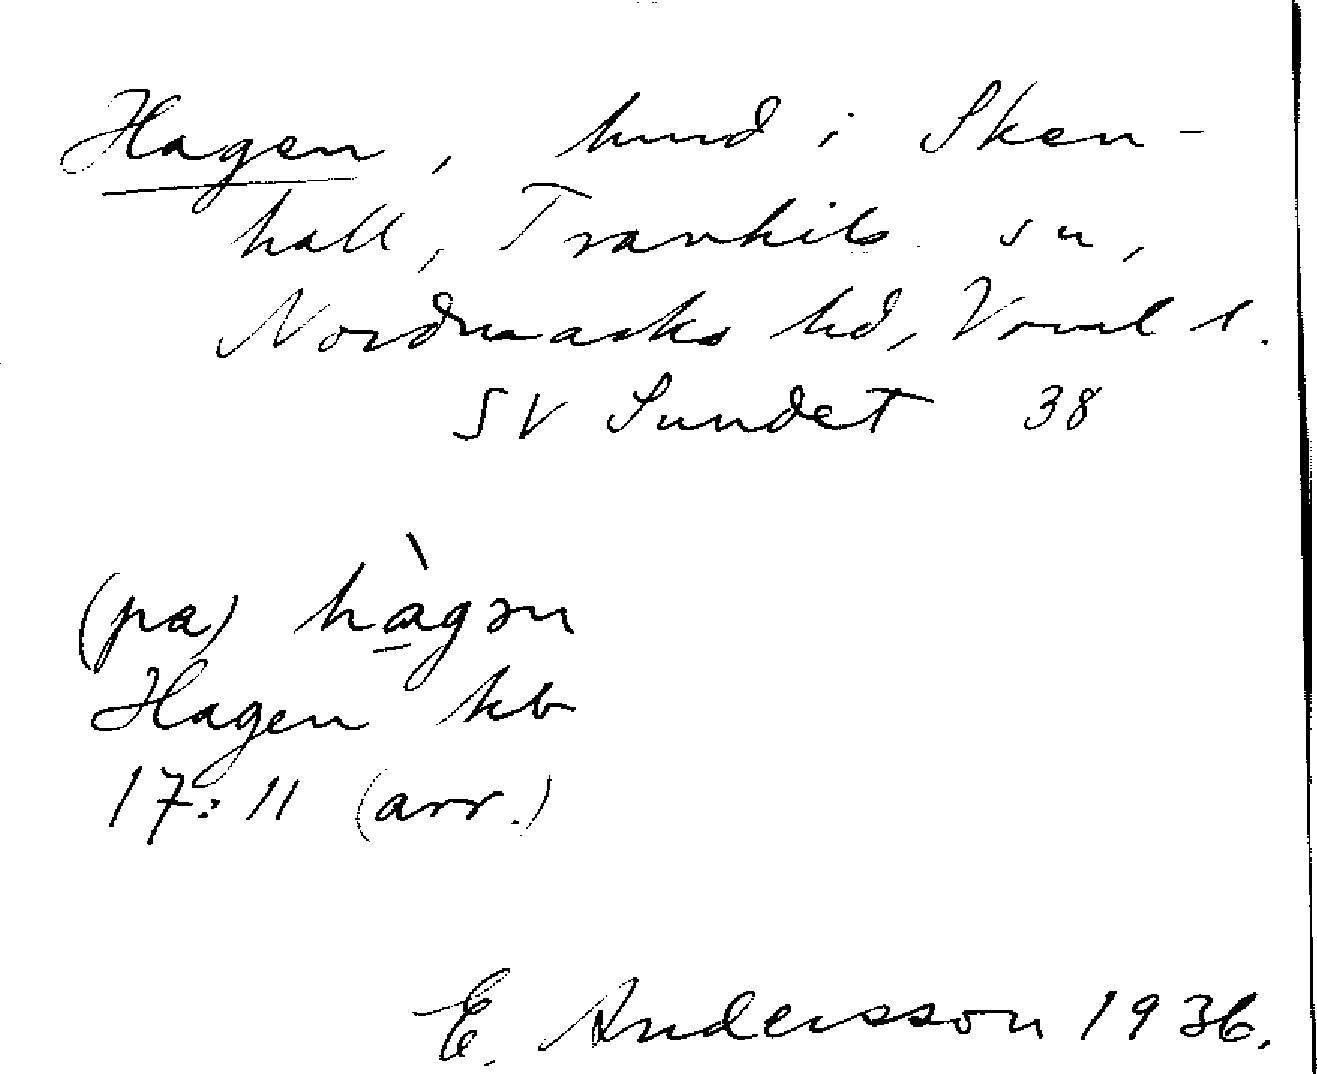 Hagen, hmd i Sken-
hall, Trankils sn,
Nordmarks hd, Vrml l.
SV Sundet 38
(pa) hàgən
Hagen kb
17:11 (arr.)
E. Andersson 1936.